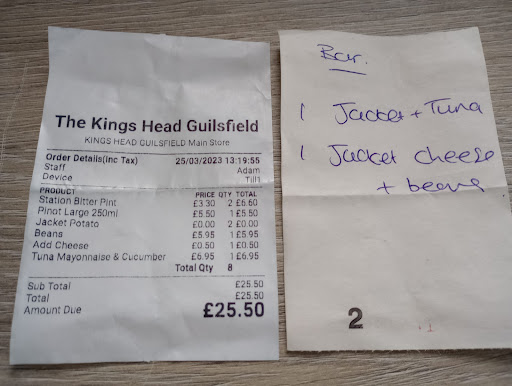 The Kings Head Guilsfield
KINGS HEAD GUILSFIELD Main Store
Order Details(inc Tax) 25/03/2023 13:19:55
Staff Adam
Device Till1
PRODUCT PRICE QTY TOTAL
Station Bitter Pint £3.30 2 £6.60
Pinot Large 250ml £5.50 1 £5.50
Jacket Potato £0.00 2 £0.00
Beans £5.95 1 £5.95
Add Cheese £0.50 1 £0.50
Tuna Mayonnaise & Cucumber £6.95 1 £6.95
Total Qty 8
Sub Total £25.50
Total £25.50
Amount Due £25.50
Bar.
1 Jacket + Tuna
1 Jacket cheese
+ beans
2 1